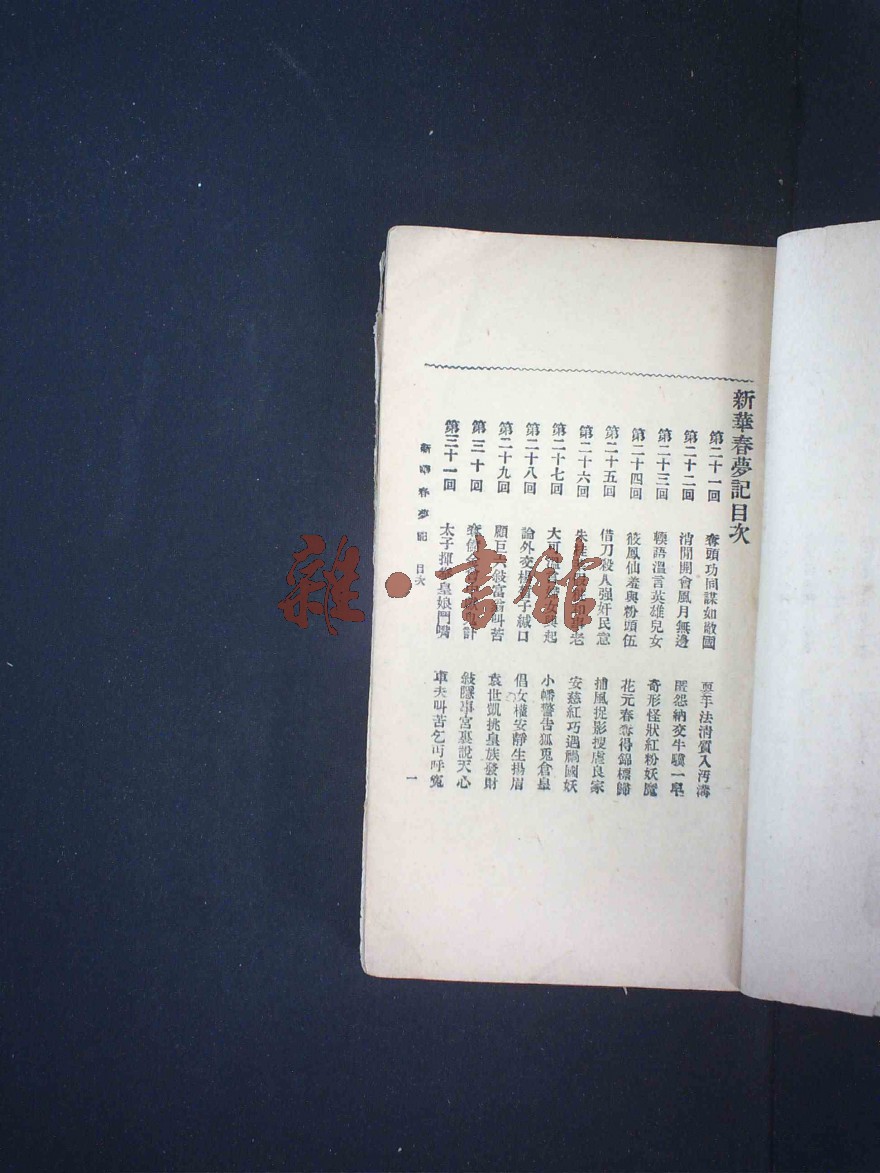 新華春夢記目次
第二十一回 奪頭功同謀如敵國 耍手法清質入汚溝
第二十二回 清閒開會風月無邊 匿怨納交牛驥一皂
第二十三回 輭語溫言英雄兒女 奇形怪狀紅粉妖魔
第二十四回 筱鳳仙羞與粉頭伍 花元春奪得錦標歸
第二十五回 借刀殺人强奸民意 捕風捉影搜虐良家
第二十六回 朱 老 安慈紅巧遇禍國妖
第二十七回 大可 女 起 小幡警告狐兎倉皇
第二十八回 論外交楊 子緘口 倡女權安靜生揚眉
第二十九回 顧巨六敍富 叫苦 袁世凱挑皇族發財
第三十回 奪 計 敍隱事宮裏說天心
第三十一回 太子揮 皇娘鬥嘴 車夫叫苦乞丐呼寃
新華春夢記 目次
一
雜·書館